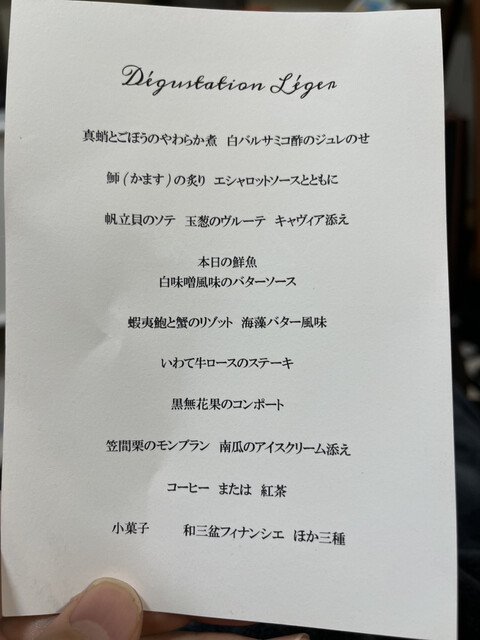 Dégustation Léger
真蛸とごぼうのやわらか煮 白バルサミコ酢のジュレのせ
魳(かます)の炙り エシャロットソースとともに
帆立貝のソテ 玉葱のヴルーテ キャヴィア添え
本日の鮮魚
白味噌風味のバターソース
蝦夷鮑と蟹のリゾット 海藻バター風味
いわて牛ロースのステーキ
黒無花果のコンポート
笠間栗のモンブラン 南瓜のアイスクリーム添え
コーヒー または 紅茶
小菓子 和三盆フィナンシエ ほか三種